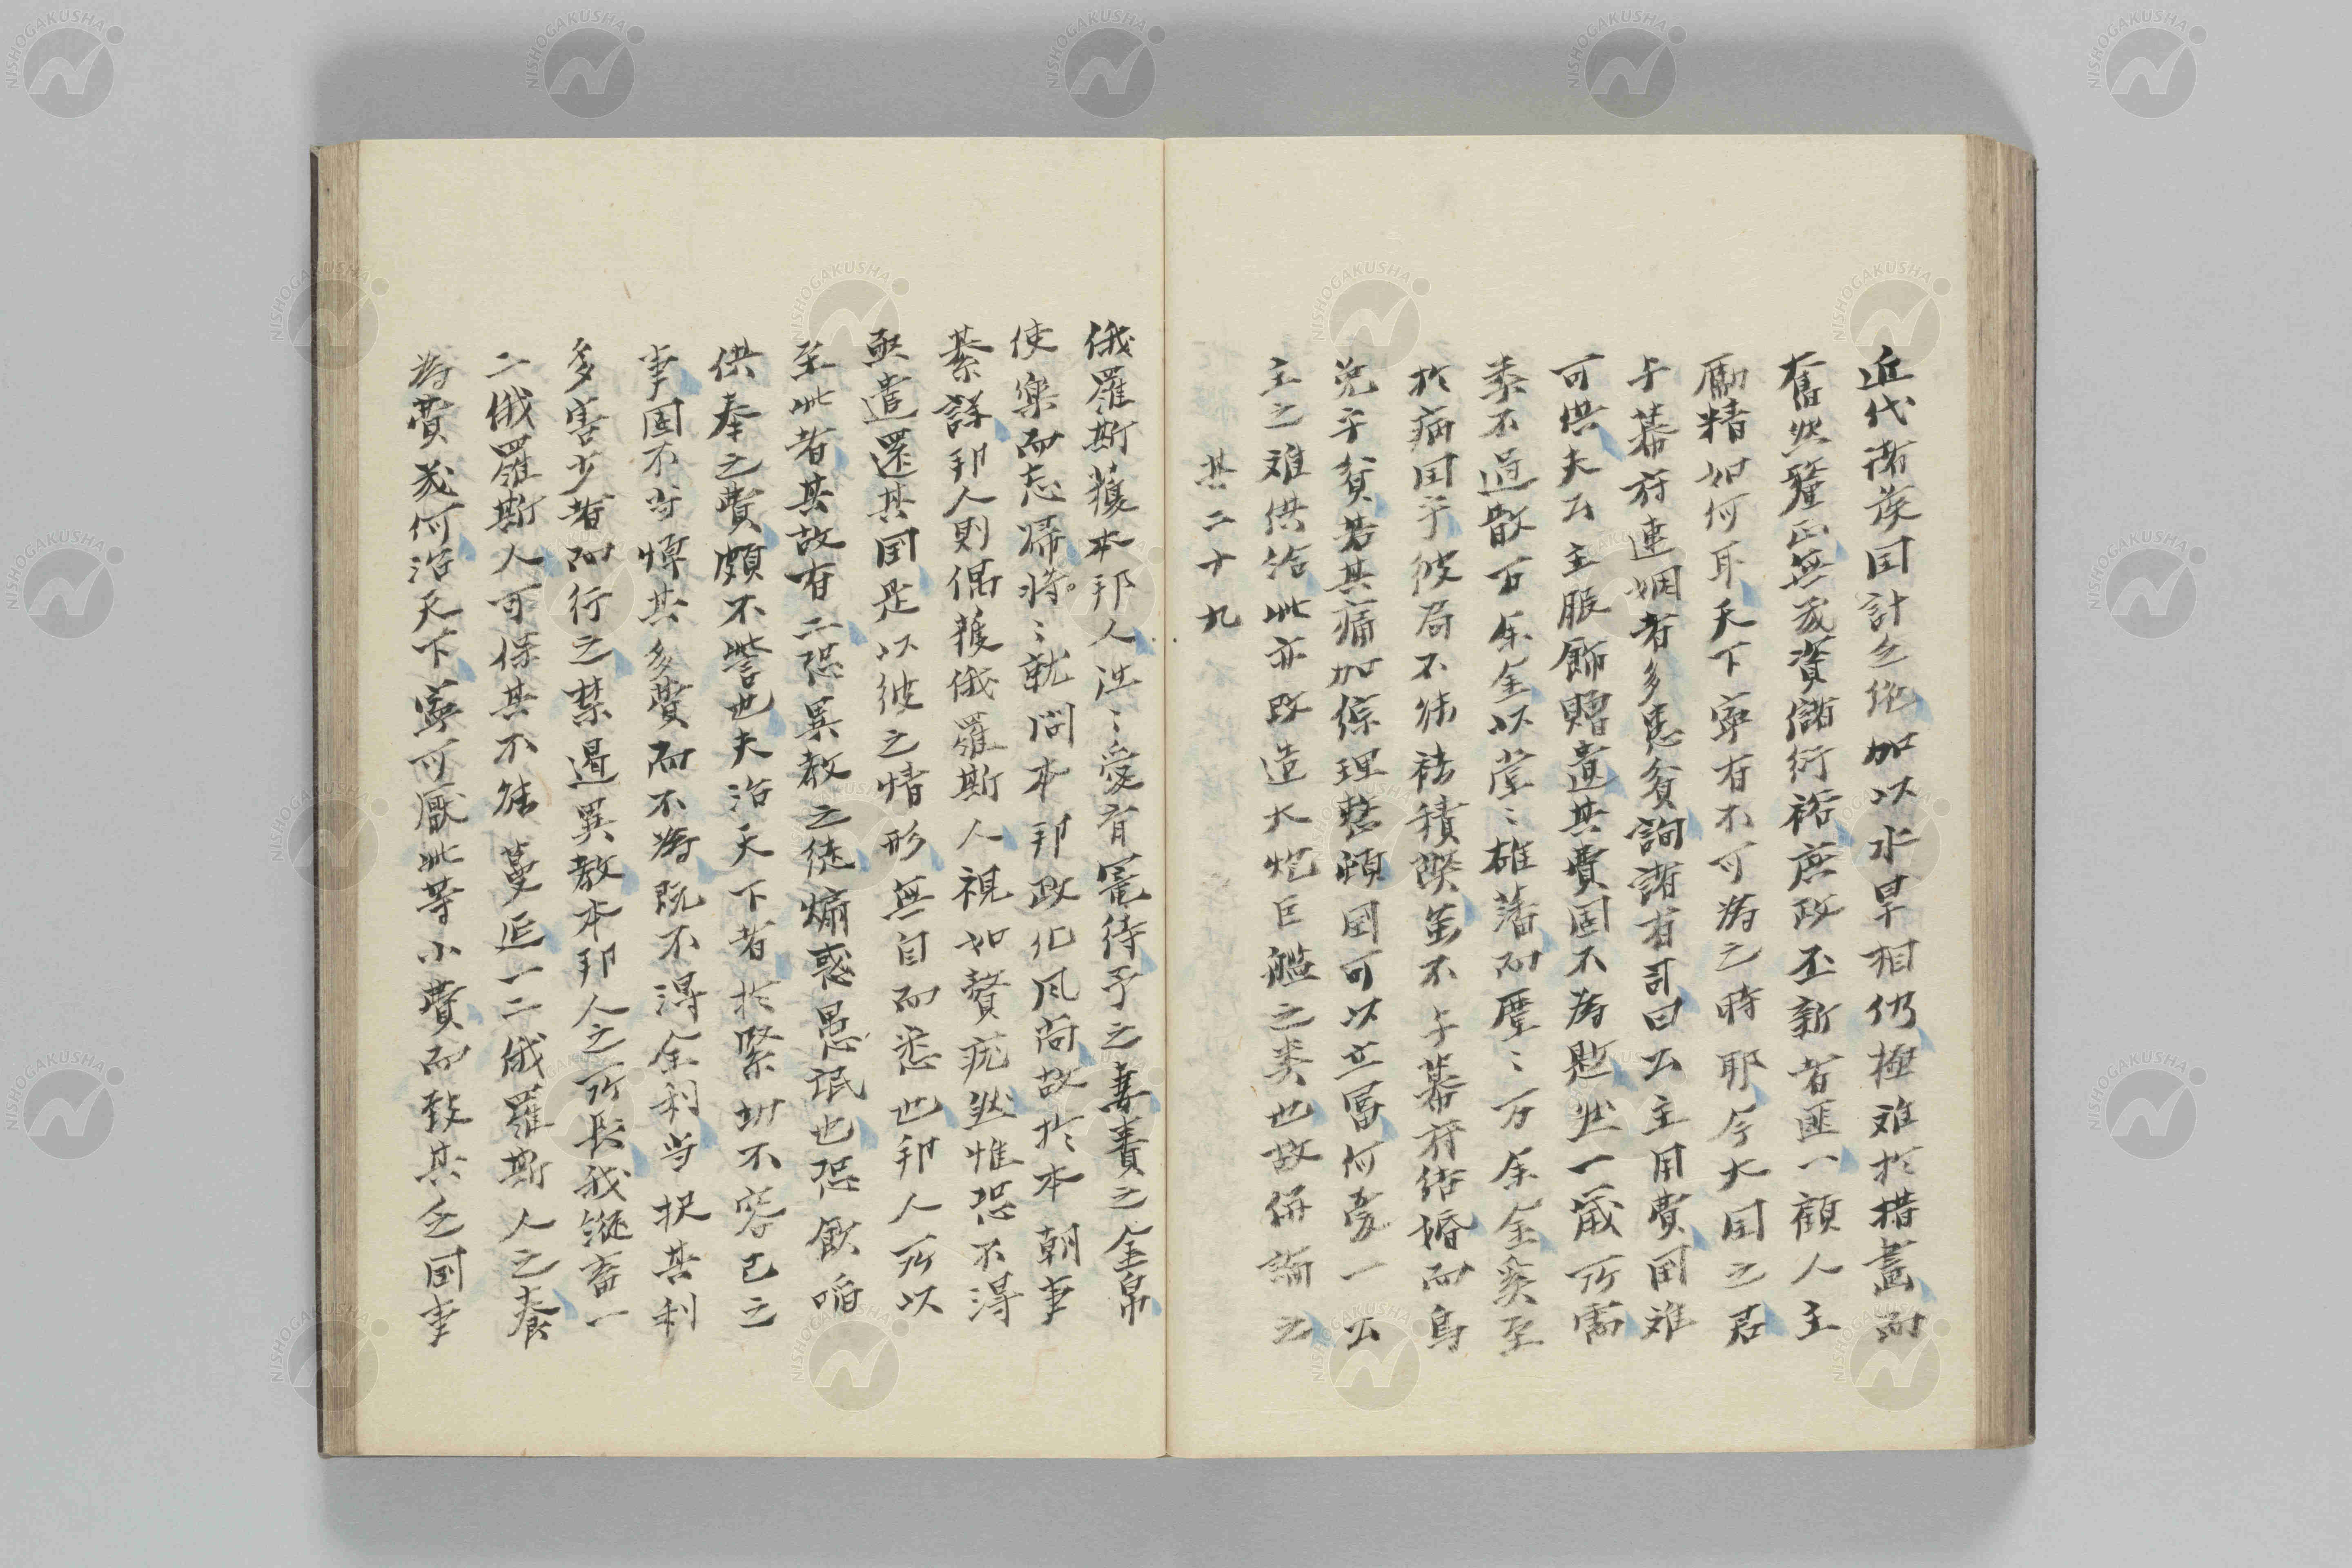 近代諸矦国計乏絶加以水旱相仍極难於措畫而
奮然釐正無幾資儲衍裕庶政丕新者匪一顧人主
勵精如何耳天下寧有不可為之時耶今大国之君
与幕府連姻者多患貧詢諸有司曰公主用費固难
可供夫公主服飾贈遺其費固不為尠然一歳所需
黍不過散万余金以堂〻雄藩而㕓〻万余金奚至
於病国乎彼君不能祛積弊虽不与幕府结婚而烏
免乎貧若其痛加综理整頓国可以立富何憂一公
主之难供给此亦改造大炮巨艦之类也故併論之
其二十九
俄羅斯獲本邦人迬〻愛育寵待予之妻妻之金帛
使樂而忘歸将〻就问本邦政化风尚故於本朝事
綦詳邦人則偶獲俄羅斯人視如贅疣然惟恐不得
亟遣還其国是以彼之情形無自而悉也邦人所以
至此者其故有二恐異教之徒煽惑愚氓也恐飲啗
供奉之費頗不訾也夫治天下者於緊切不容已之
事固不当惮其多費而不為既不得全利当択其利
多害少者而行之禁遏異教本邦人之所長我縦畜一
二俄羅斯人可保其不能蔓延一二俄羅斯人之養
為費幾何治天下寧可厭此等小費而致其乏国事